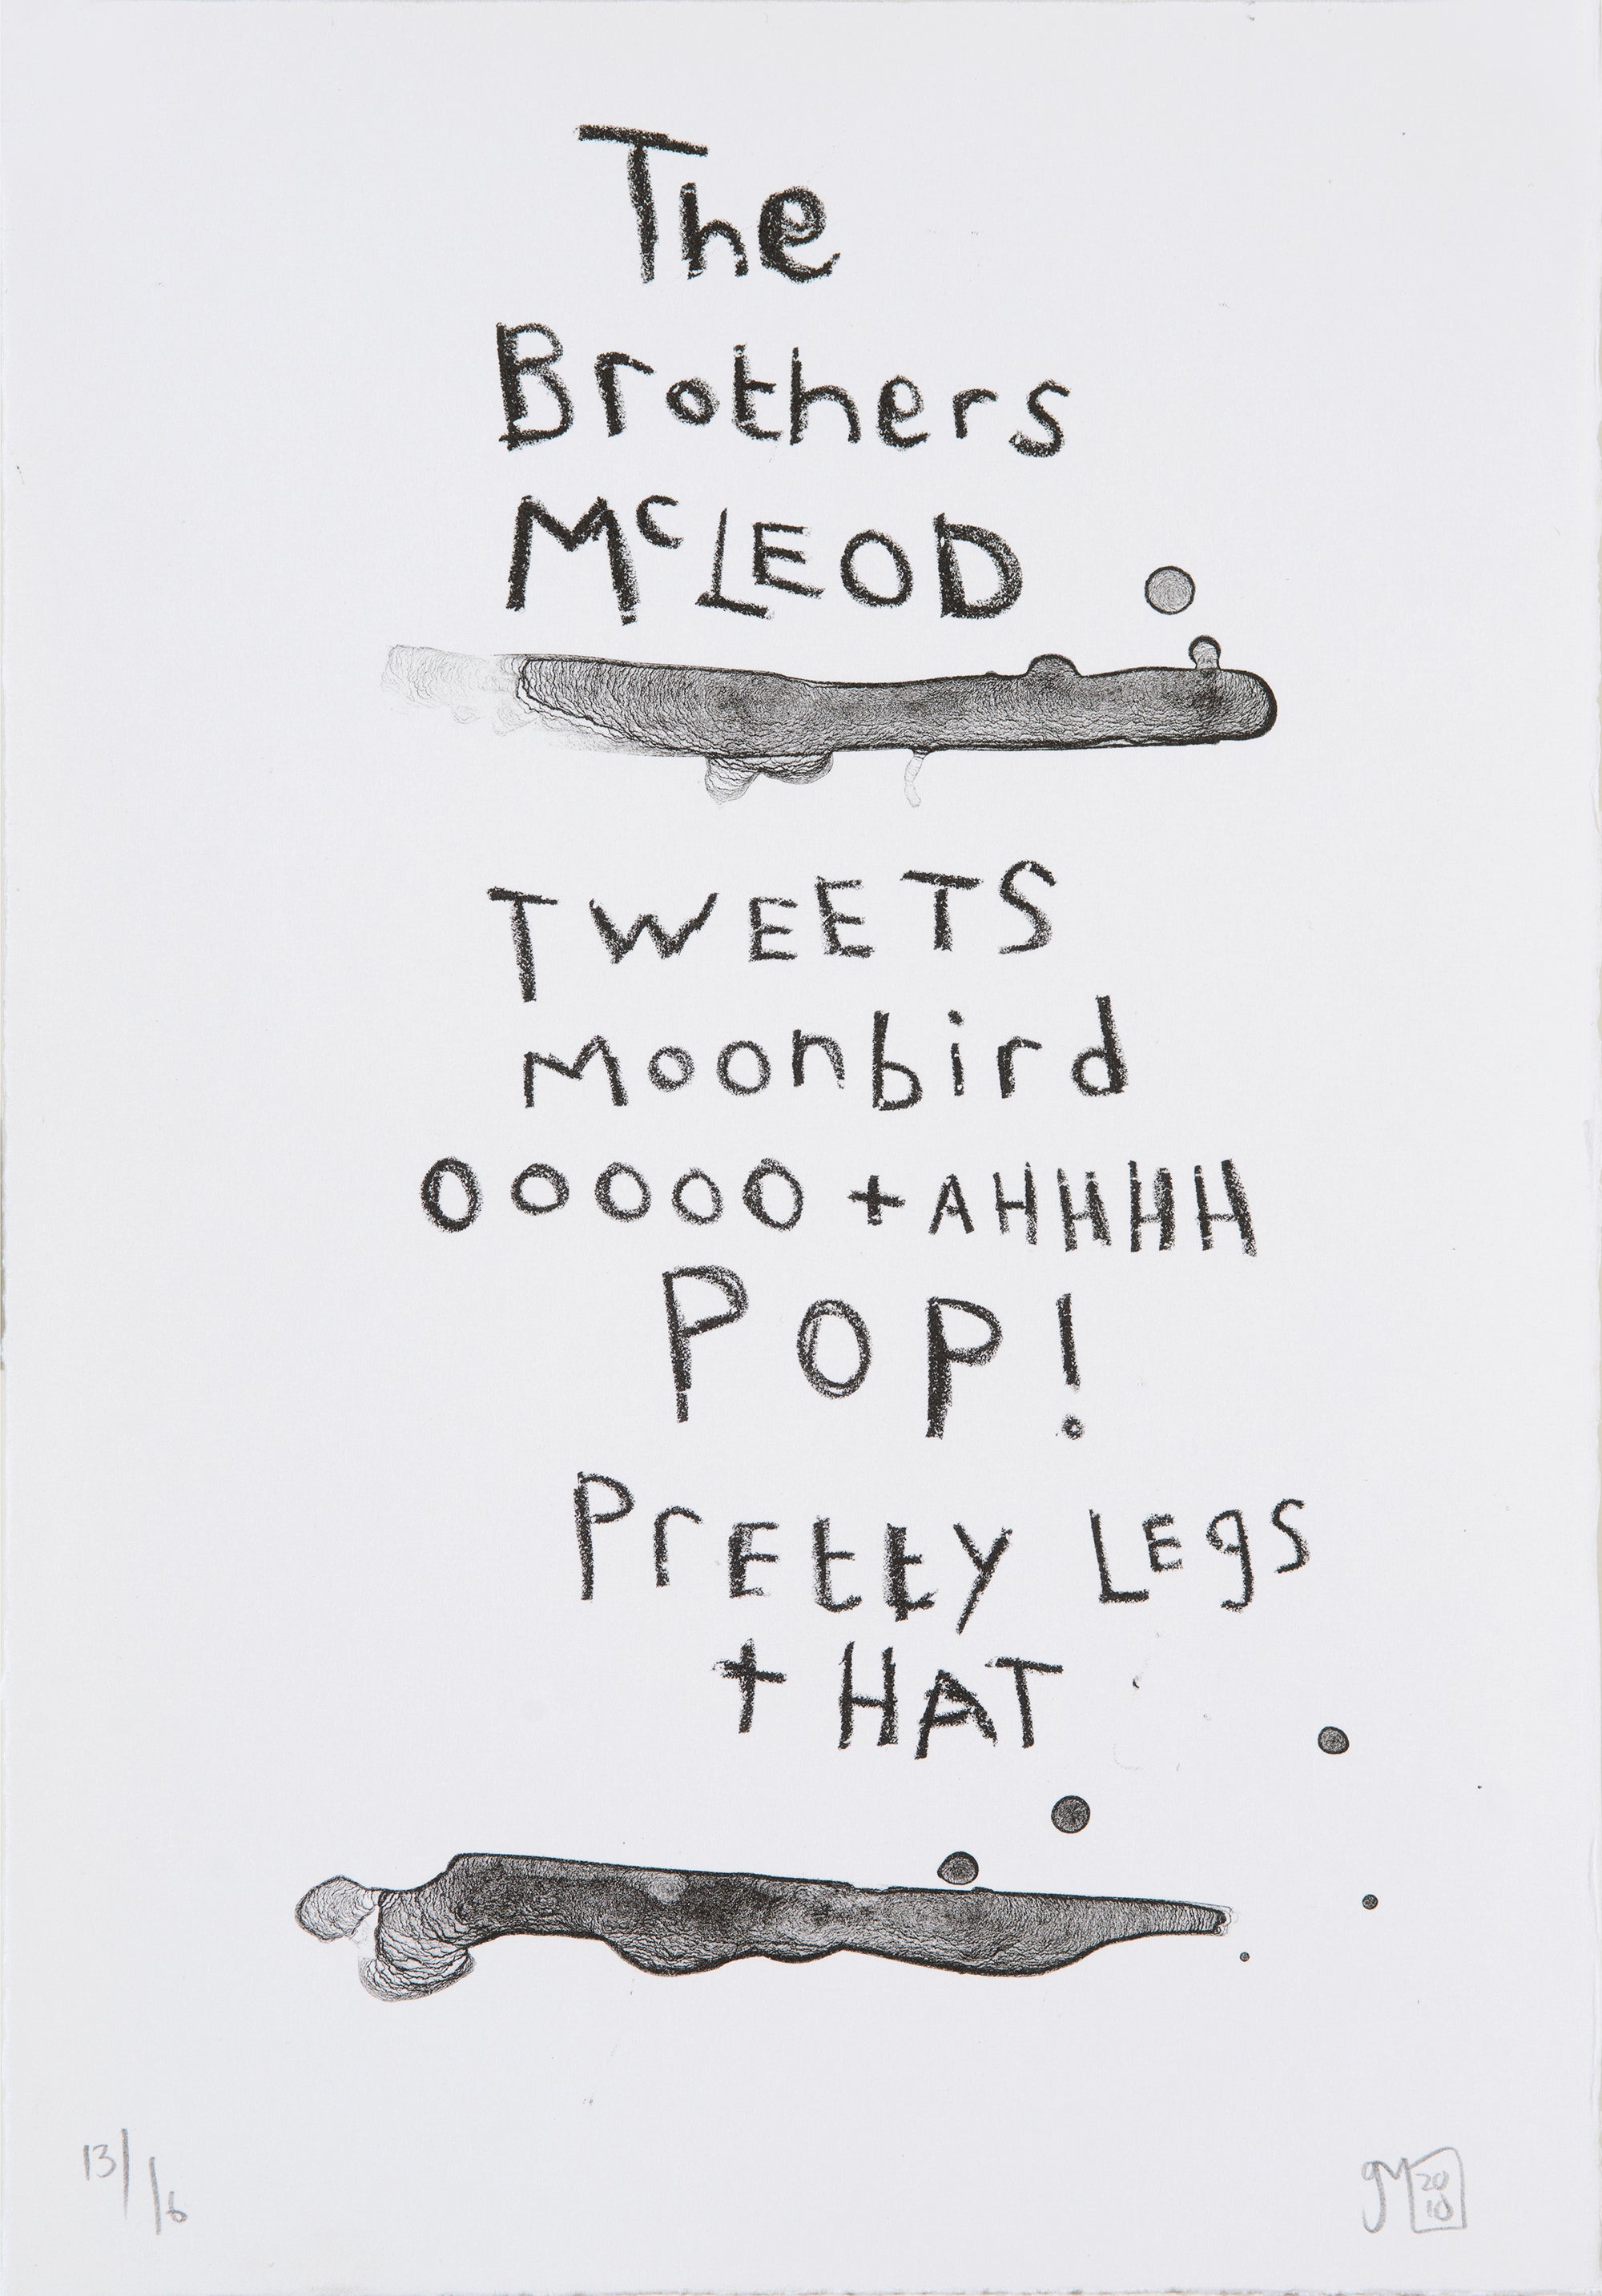 The
Brothers
McLEOD
TWEETS
Moonbird
OOOOO + AHHHH
POP!
PrEttY LEgS
+ HAT
13/16
gM 2010